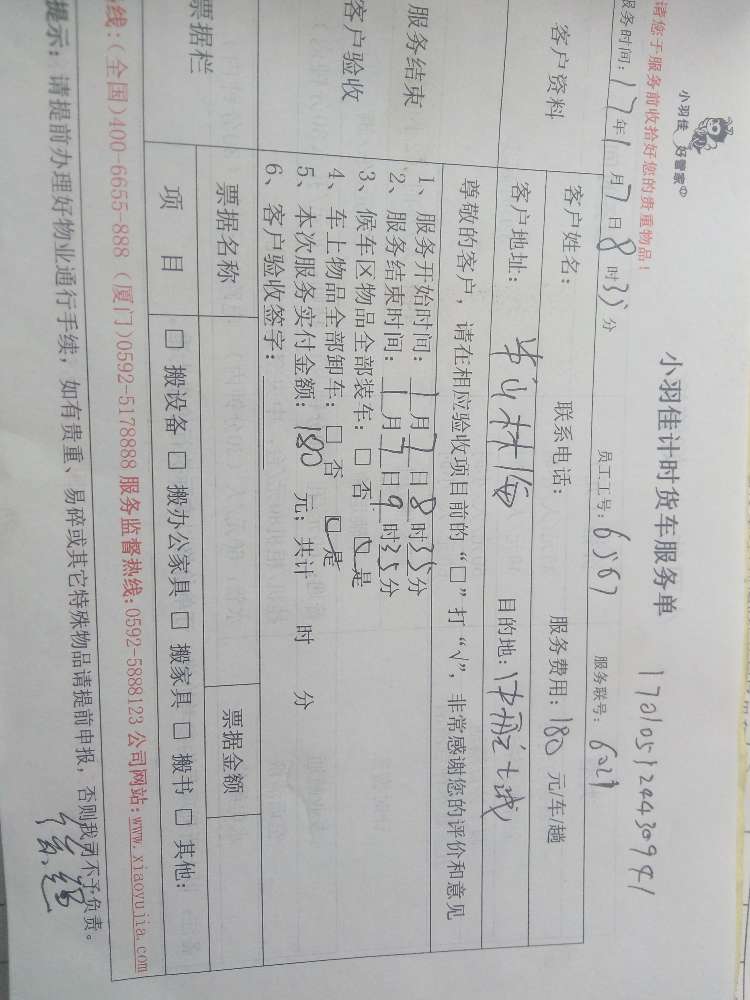 小羽佳 好管家
请您于服务前收拾好您的贵重物品！
小羽佳计时货车服务单
17010512443094 1
服务时间：17年1月7日8时35分 员工工号：6567 服务联号：6021
客户资料
客户姓名： 联系电话： 服务费用：180 元/车/趟
客户地址：半山林海 目的地：
服务结束
客户验收
尊敬的客户，请在相应验收项目前的“□”打“√”，非常感谢您的评价和意见
1、服务开始时间：1月7日8时35分
2、服务结束时间：1月7日9时35分
3、候车区物品全部装车：□ 否 □ 是
4、车上物品全部卸车：□ 否 □ 是
5、本次服务实付金额：180 元；共计 时 分
6、客户验收签字：
票据栏
票据名称 票据金额
项目 □ 搬设备 □ 搬办公家具 □ 搬家具 □ 搬书 □ 其他：
线：（全国）400-6655-888（厦门）0592-5178888 服务监督热线：0592-5888123 公司网站：www.xiaoyujia.com
提示：请提前办理好物业通行手续，如有贵重、易碎或其它特殊物品请提前申报，否则我司不予负责。